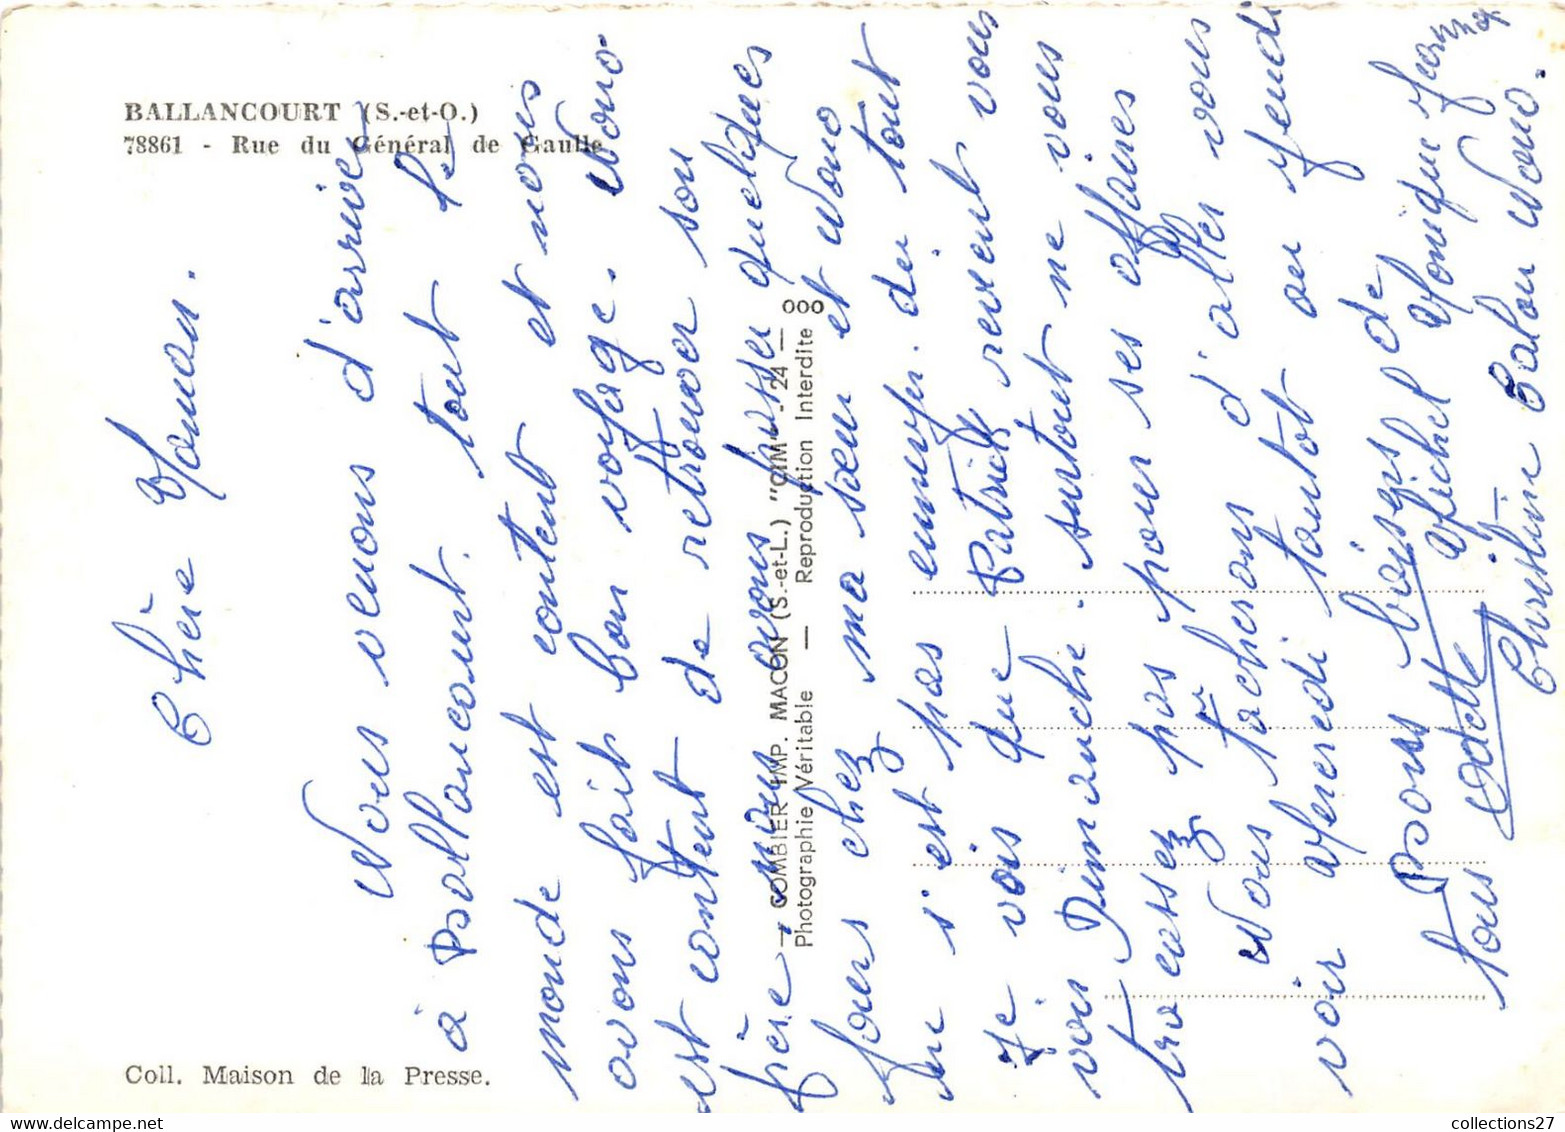 BALLANCOURT (S.-et-O.)
78861 - Rue du Général de Gaulle
Chère Maman.
Nous venons d'arriver
à Ballancourt. tout le
monde est content et nous
avons fait bon voyage. Nono
est content de retrouver son
père nous avons passer quelques
jours chez ma sœur et Nono
ne s'est pas ennuyer. du tout
Je vois que Patrick revient vous
voir Dimanche. surtout ne vous
tracassez pas pour ses affaires
Nous tâcherons d'aller vous
voir Mercredi tantot ou Jeudi
Bons baisers de
tous Odette Michel Monique
Christine Nono.
COMBIER IMP. MACON (S.-et-L.) "CIM" - 24 -
Photographie Véritable — Reproduction Interdite
Coll. Maison de la Presse.
collections27